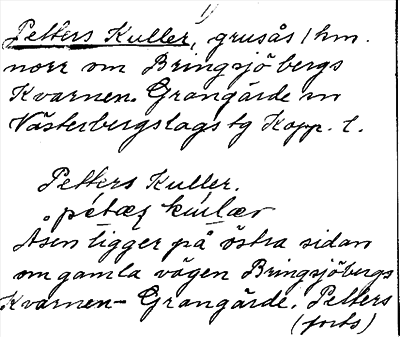 1)
Petters Kuller, grusås 1 hm.
norr om Bringsjöbergs
Kvarnen. Grangärde sn
Västerbergslags tg Kopp. l.
Petters Kuller.
pétæʂ kulær
Åsen ligger på östra sidan
om gamla vägen Bringsjöbergs
Kvarnen - Grangärde. Petters
(forts)